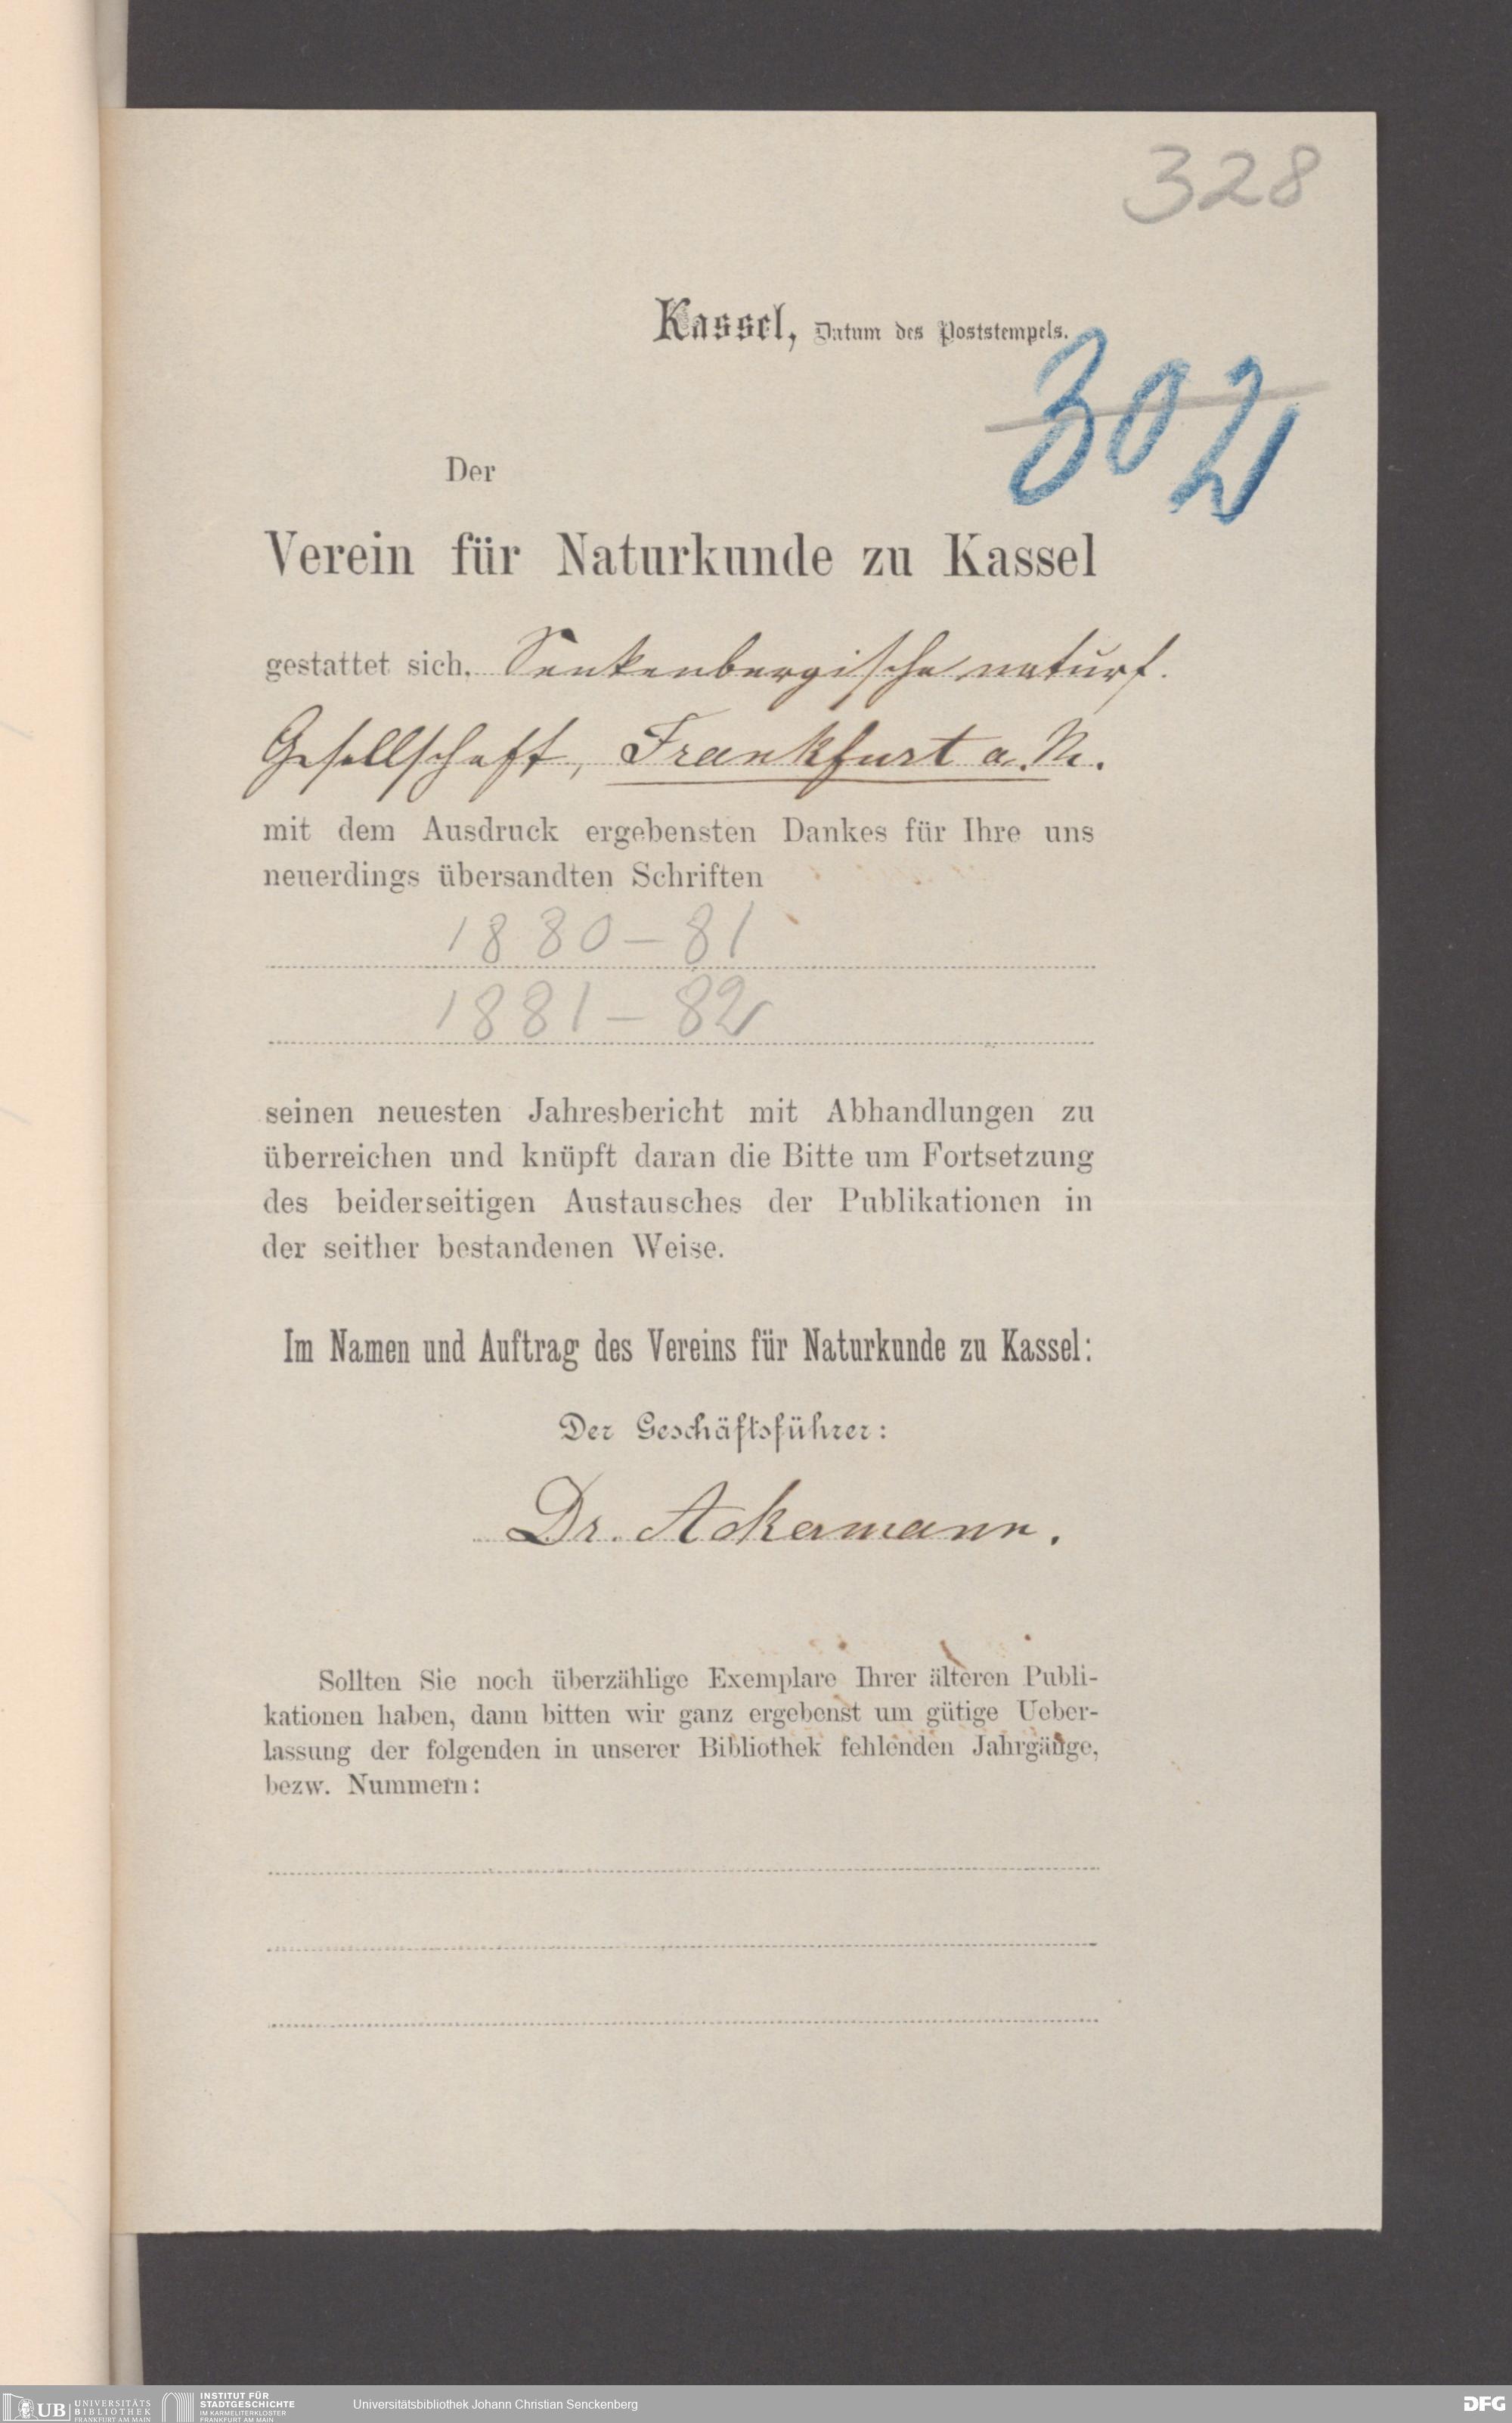 328
Kassel, Datum des Poststempels.
302
Der
Verein für Naturkunde zu Kassel
gestattet sich, Senkenbergische naturf.
Gesellschaft, Frankfurt a. M.
mit dem Ausdruck ergebensten Dankes für Ihre uns
neuerdings übersandten Schriften
1880-81
1881-82
seinen neuesten Jahresbericht mit Abhandlungen zu
überreichen und knüpft daran die Bitte um Fortsetzung
des beiderseitigen Austausches der Publikationen in
der seither bestandenen Weise.
Im Namen und Auftrag des Vereins für Naturkunde zu Kassel:
Der Geschäftsführer:
Dr. Ackermann.
Sollten Sie noch überzählige Exemplare Ihrer älteren Publi-
kationen haben, dann bitten wir ganz ergebenst um gütige Ueber-
lassung der folgenden in unserer Bibliothek fehlenden Jahrgänge,
bezw. Nummern:
UB UNIVERSITÄTS BIBLIOTHEK FRANKFURT AM MAIN
INSTITUT FÜR STADTGESCHICHTE IM KARMELITERKLOSTER FRANKFURT AM MAIN
Universitätsbibliothek Johann Christian Senckenberg
DFG